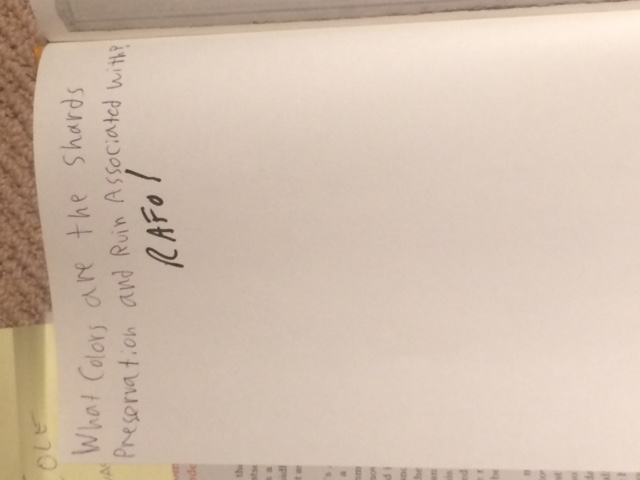 What Colors are the Shards
Preservation and Ruin Associated with?
RAFO!
OLE